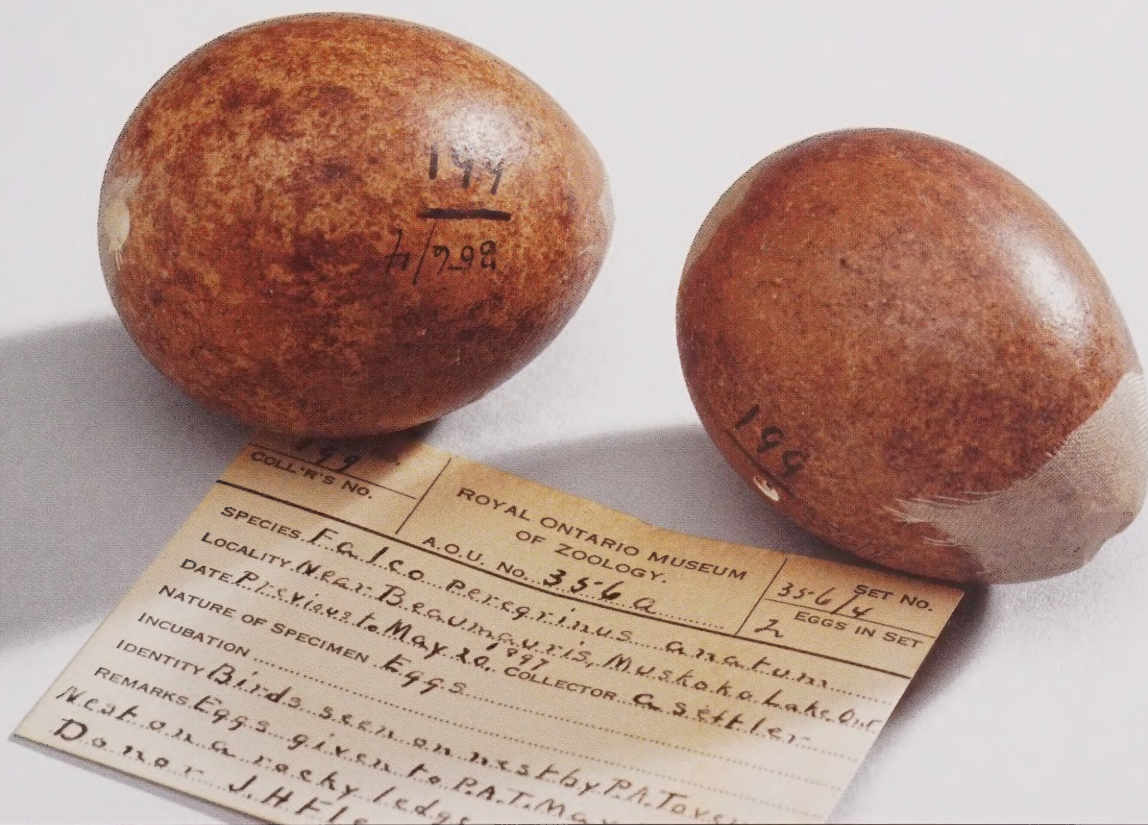 199
199
COLL'R'S NO.
ROYAL ONTARIO MUSEUM
OF ZOOLOGY.
A.O.U. No. 356a
SET NO.
356/4
EGGS IN SET
2
SPECIES Falco peregrinus anatum
LOCALITY Near Beaumauris, Muskoka Lake Ont
DATE Previous to May 20, COLLECTOR a settler
NATURE OF SPECIMEN Eggs
INCUBATION
IDENTITY Birds seen on nest by P.A. Taven
REMARKS Eggs given to P.A.T. May
Nest on a rocky ledge
Donor J.H. Fle